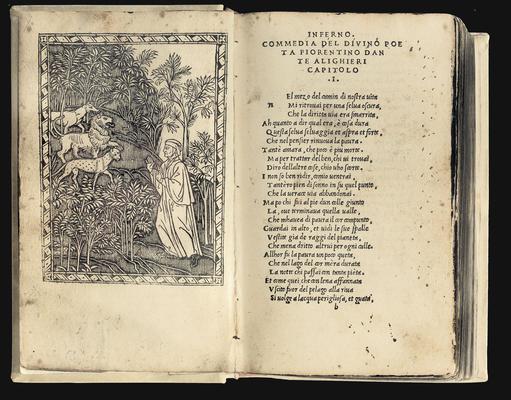 INFERNO.
COMMEDIA DEL DIVINO POE
TA FIORENTINO DAN
TE ALIGHIERI
CAPITOLO
.I.
El mezo del camin di nostra uita
N Mi ritrouai per una selua oscura,
Che la diritta uia era smarrita.
Ah quanto a dir qual era, è cosa dura
Questa selua seluaggia et aspra et forte,
Che nel pensier rinuoua la paura.
Tant'è amara, che poco è piu morte.
Ma per trattar del ben, ch'i ui trouai,
Diro dellaltre cose, ch'io u'ho scorte.
I non so ben ridir, com'io u'entrai,
Tant'era pien di sonno in su quel punto,
Che la uerace uia abbandonai.
Ma po ch'i fui al pie d'un colle giunto
La, oue terminaua quella ualle,
Che m'hauea di paura il cor compunto,
Guardai in alto, et uidi le sue spalle
Vestite gia de raggi del pianeta,
Che mena dritto altrui per ogni calle.
Allhor fu la paura un poco queta,
Che nel lago del cor m'era durata
La notte ch'i passai con tanta pièta.
Et come quei che con lena affannata
Vscito fuor del pelago alla riua
Si uolge a lacqua perigliosa, et guata,
b